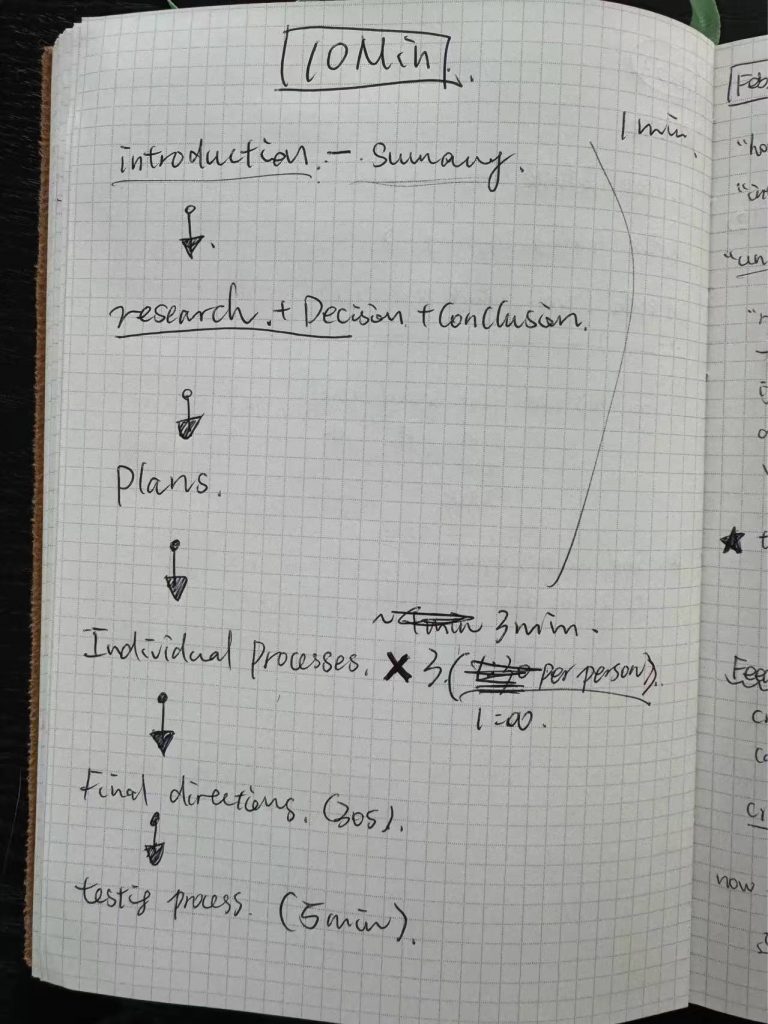 10 Min
1 min.
introduction. - Sumary.
research. + Decision + Conclusion.
Plans.
3 min.
Individual Processes. × 3. (per person).
1:00.
Final directions. (30s).
process. (5 min).
"ho
"un
★ t
Feed
now